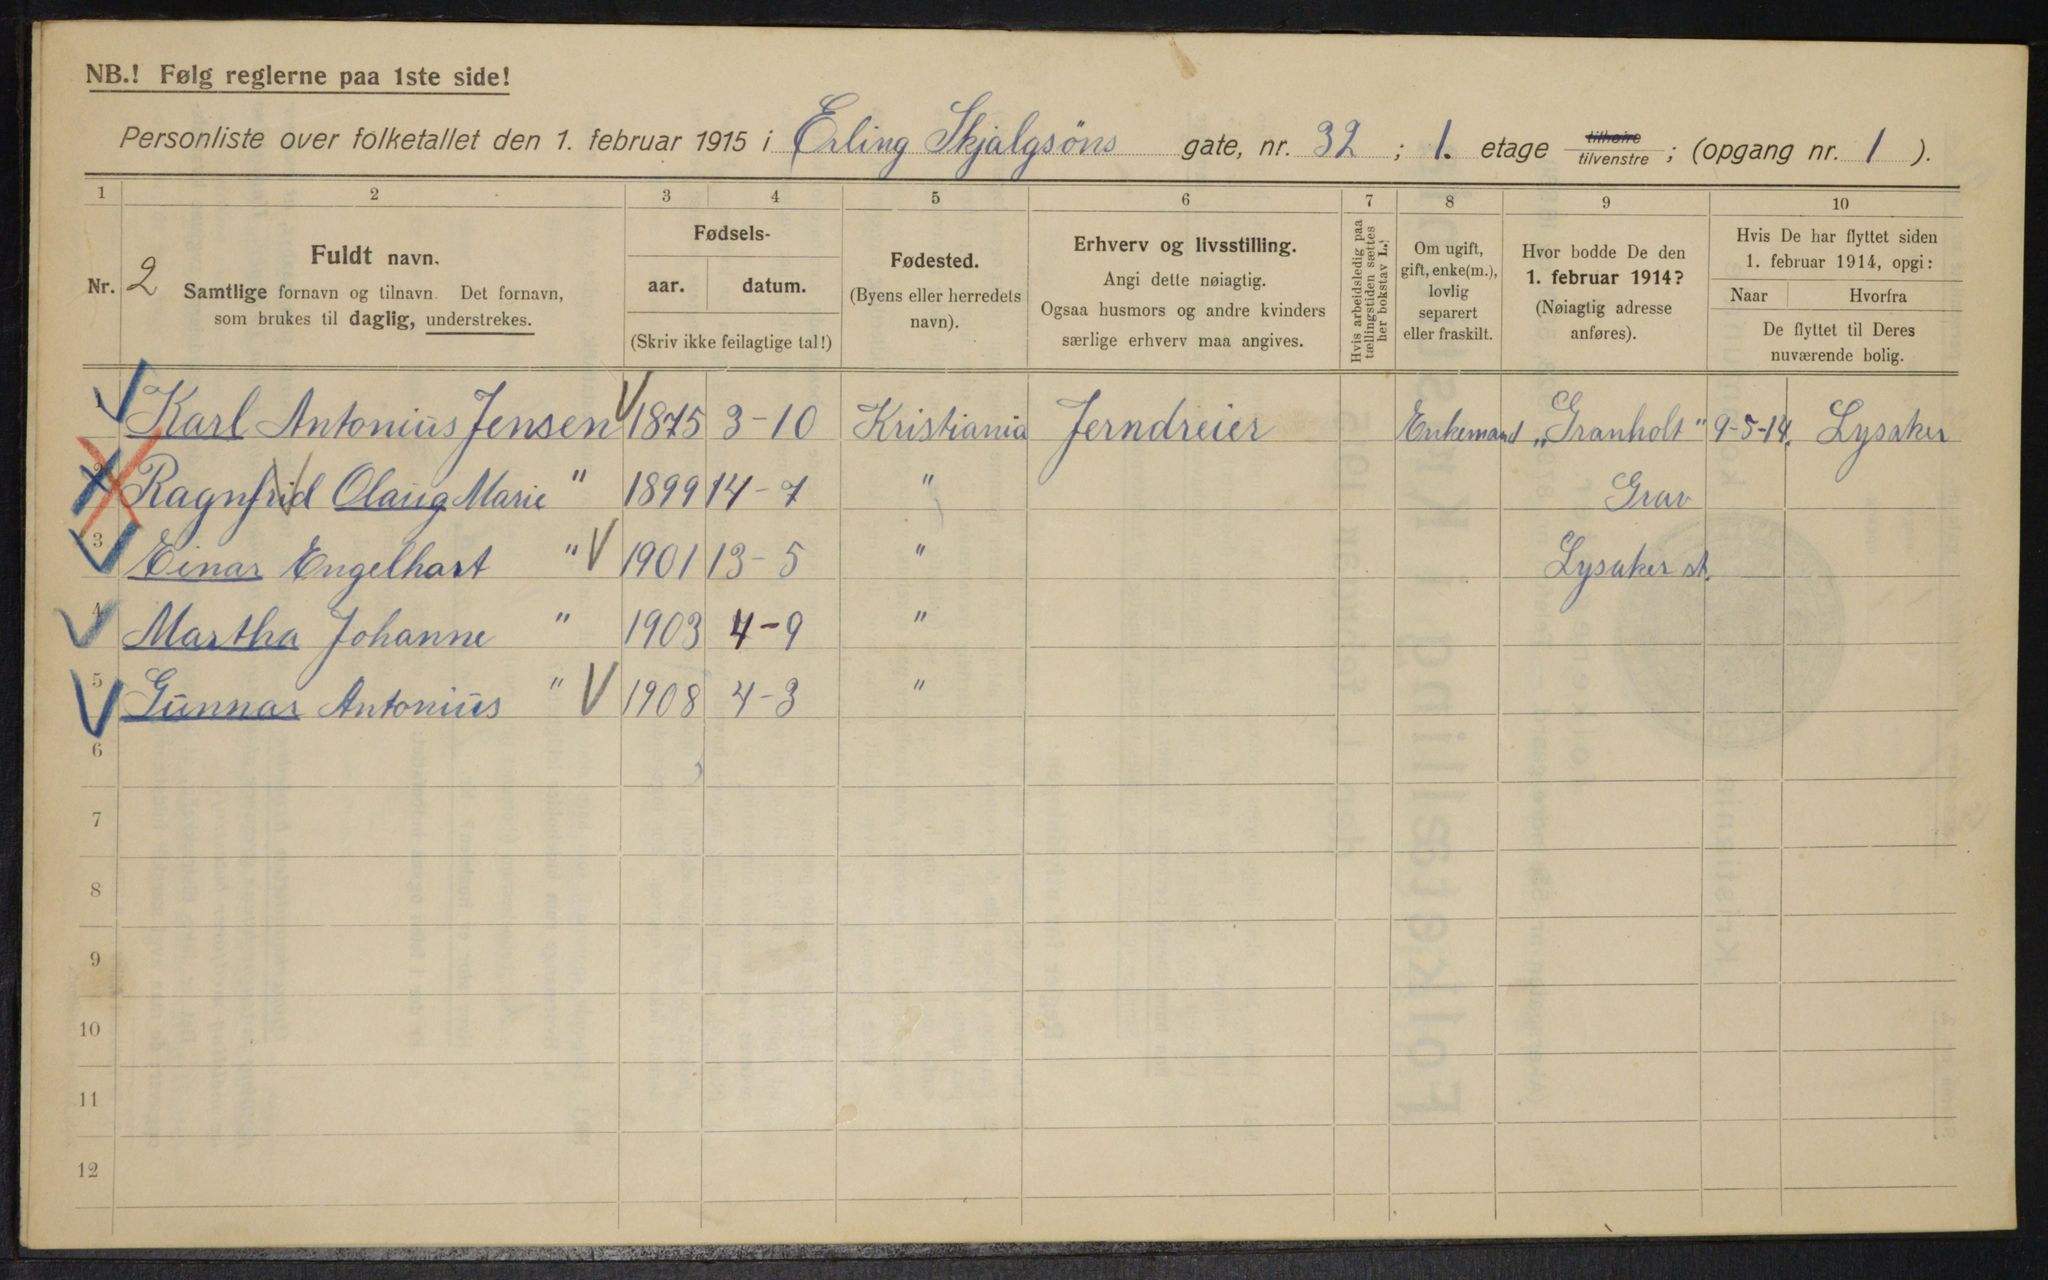 NB.! Følg reglerne paa 1ste side!
Personliste over folketallet den 1. februar 1915 i Erling Skjalgsöns gate, nr. 32 ; 1. etage tilhøire tilvenstre ; (opgang nr. 1 ).
1 2 3 4 5 6 7 8 9 10
Nr. 2
Fuldt navn.
Samtlige fornavn og tilnavn. Det fornavn,
som brukes til daglig, understrekes.
Fødsels-
aar. datum.
(Skriv ikke feilagtige tal!)
Fødested.
(Byens eller herredets
navn).
Erhverv og livsstilling.
Angi dette nøiagtig.
Ogsaa husmors og andre kvinders
særlige erhverv maa angives.
Hvis arbeidsledig paa
tællingstiden sættes
her bokstav L.
Om ugift,
gift, enke(m.),
lovlig
separert
eller fraskilt.
Hvor bodde De den
1. februar 1914?
(Nøiagtig adresse
anføres).
Hvis De har flyttet siden
1. februar 1914, opgi:
Naar Hvorfra
De flyttet til Deres
nuværende bolig.
1 Karl Antonius Jensen 1875 3-10 Kristiania Jerndreier Enkemand „Granholt" 9-5-14. Lysaker
2 Ragnfrid Olaug Marie " 1899 14-7 " Grav
3 Einar Engelhart " 1901 13-5 " Lysaker st.
4 Martha Johanne " 1903 4-9 "
5 Gunnar Antonius " 1908 4-3 "
6
7
8
9
10
11
12